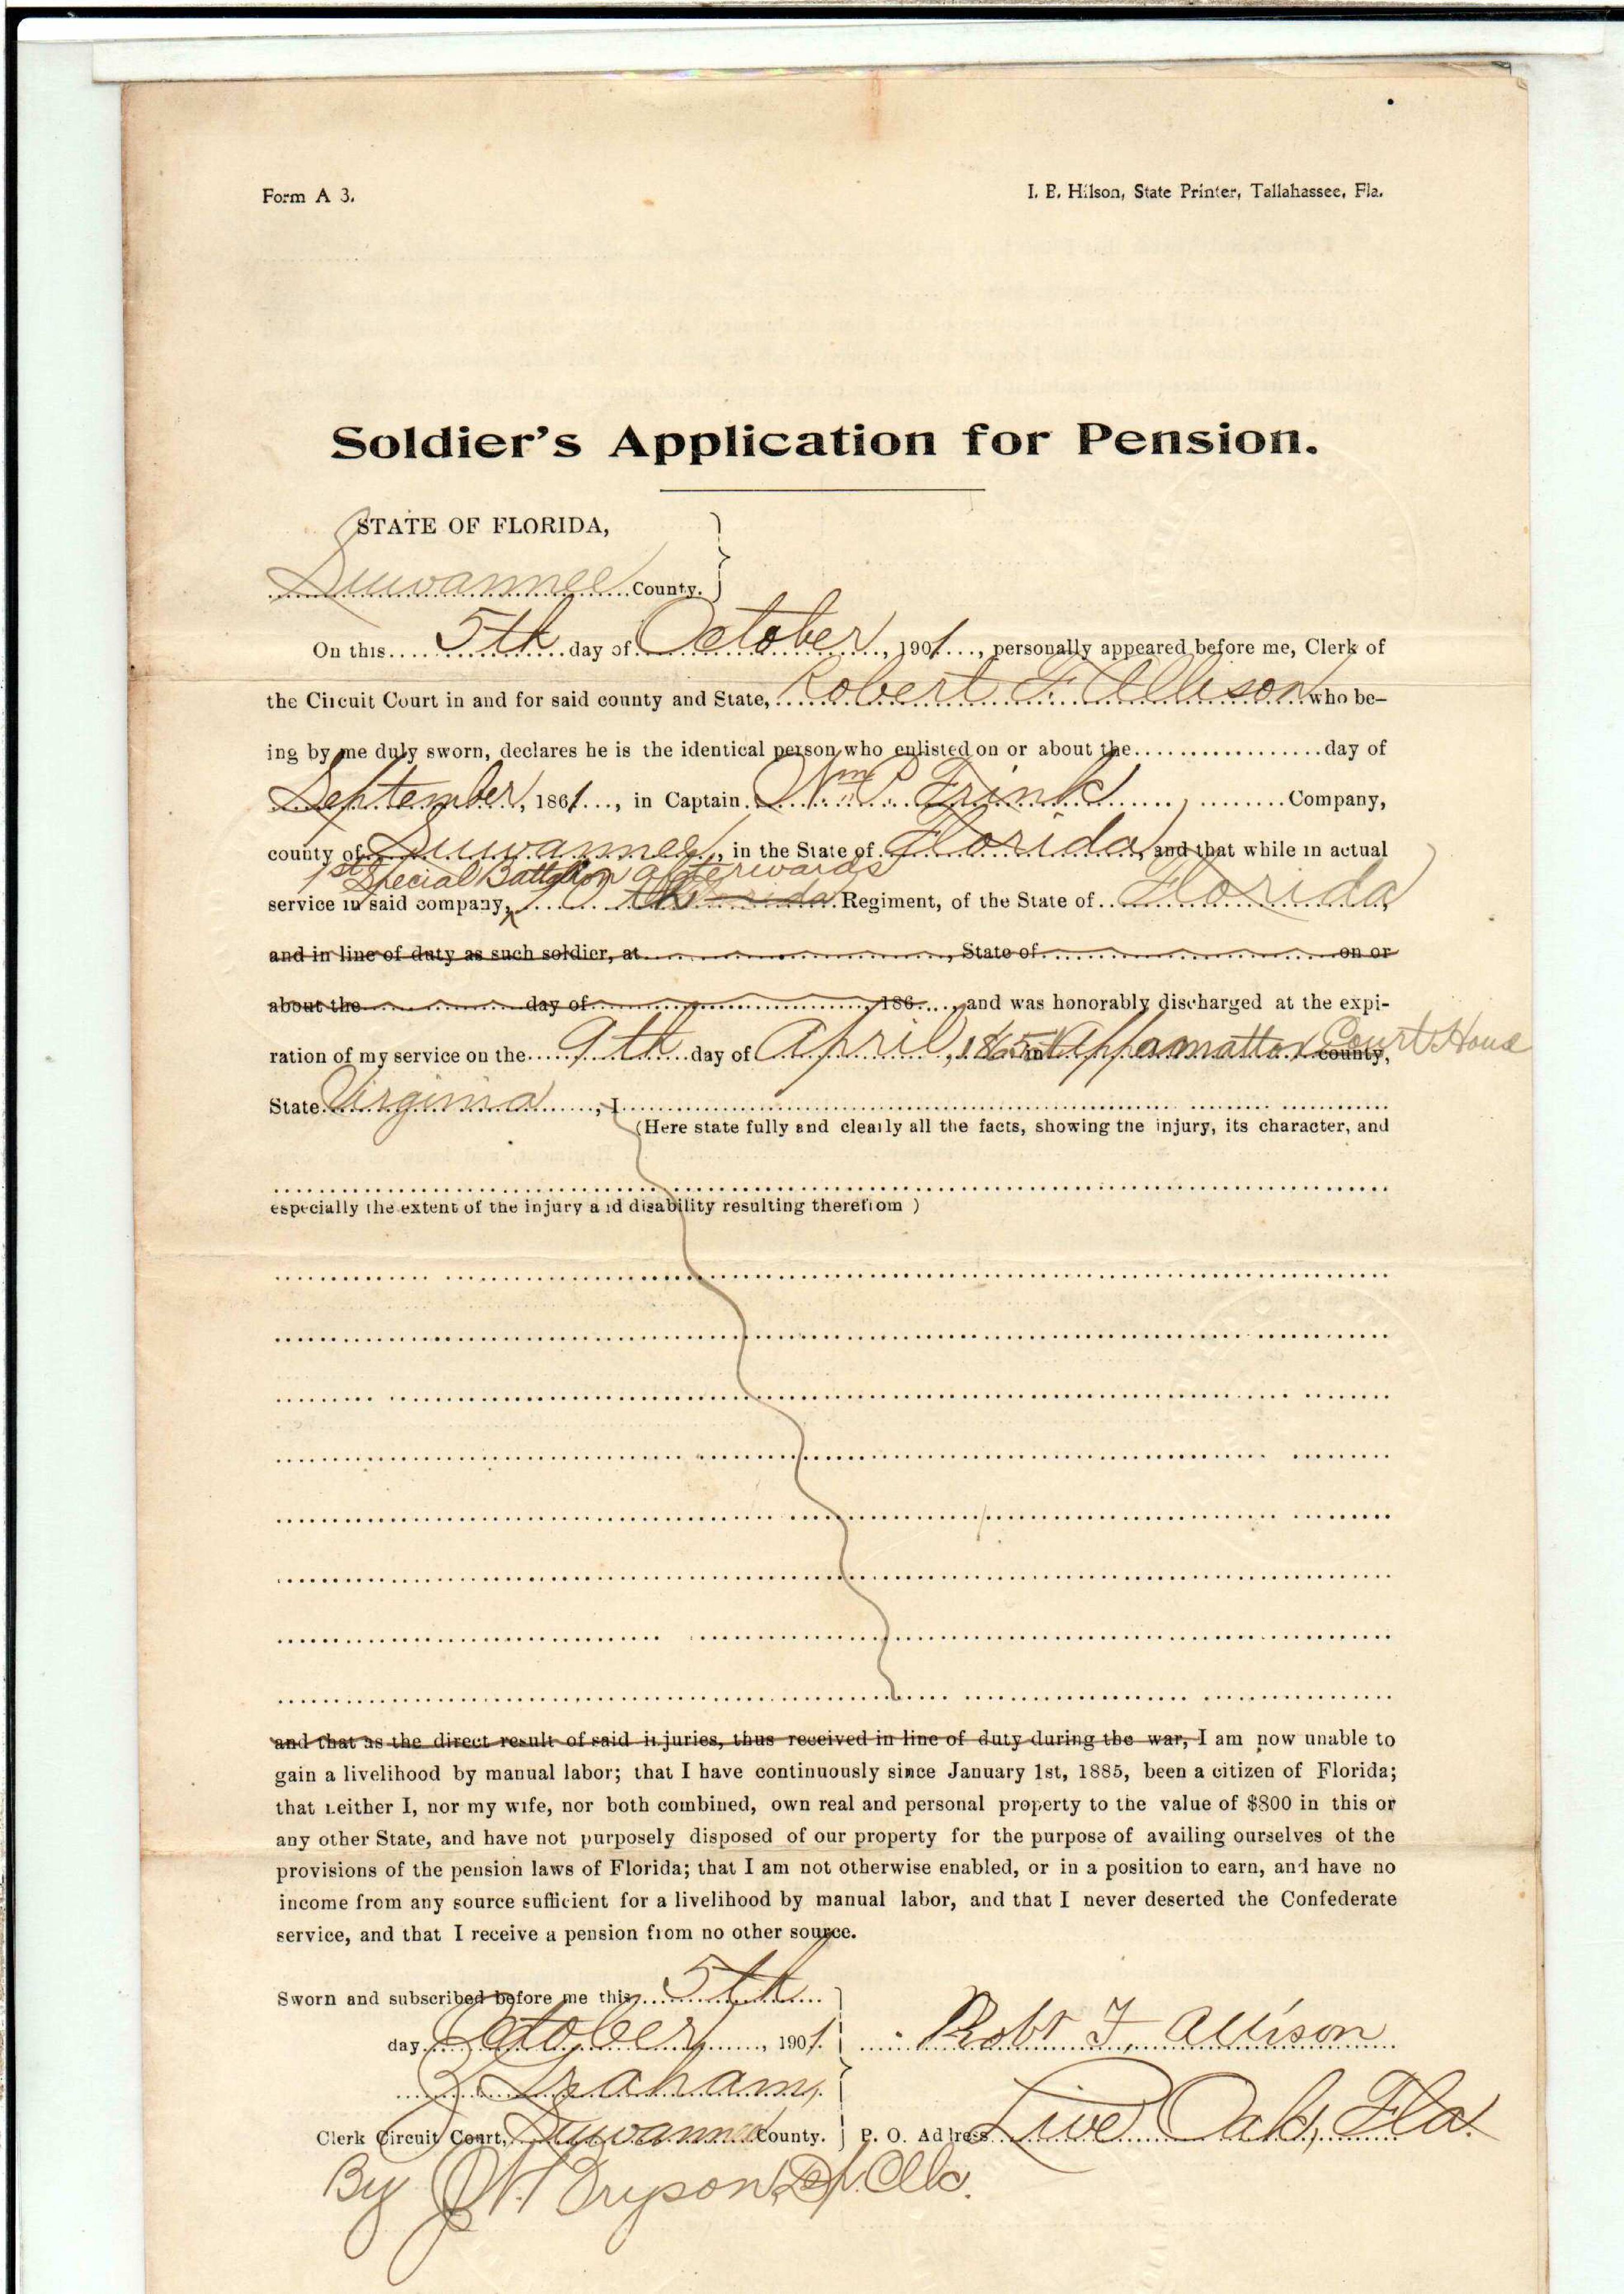 Form A 3.
I. E. Hilson, State Printer, Tallahassee, Fla.
Soldier's Application for Pension.
STATE OF FLORIDA,
Suwannee County.
On this 5th day of October, 1901, personally appeared before me, Clerk of
the Circuit Court in and for said county and State, Robert F. Allison who be-
ing by me duly sworn, declares he is the identical person who enlisted on or about the day of
September, 1861, in Captain Wm P Frink, Company,
county of Suwannee, in the State of Florida, and that while in actual
1st Special Battalion afterwards
service in said company, Regiment, of the State of Florida
and in line of duty as such soldier, at , State of on or
about the day of , 186 , and was honorably discharged at the expi-
ration of my service on the 9th day of April, 1865 at Appamattox Court House county,
State Virginia, I
(Here state fully and clearly all the facts, showing the injury, its character, and
especially the extent of the injury and disability resulting therefrom )
and that as the direct result of said injuries, thus received in line of duty during the war, I am now unable to
gain a livelihood by manual labor; that I have continuously since January 1st, 1885, been a citizen of Florida;
that neither I, nor my wife, nor both combined, own real and personal property to the value of $800 in this or
any other State, and have not purposely disposed of our property for the purpose of availing ourselves of the
provisions of the pension laws of Florida; that I am not otherwise enabled, or in a position to earn, and have no
income from any source sufficient for a livelihood by manual labor, and that I never deserted the Confederate
service, and that I receive a pension from no other source.
Sworn and subscribed before me this 5th
day October, 1901. Robt F. Allison
Graham,
Clerk Circuit Court, Suwannee County. P. O. Address Live Oak, Fla.
By J W Bryson, Dp. Clk.